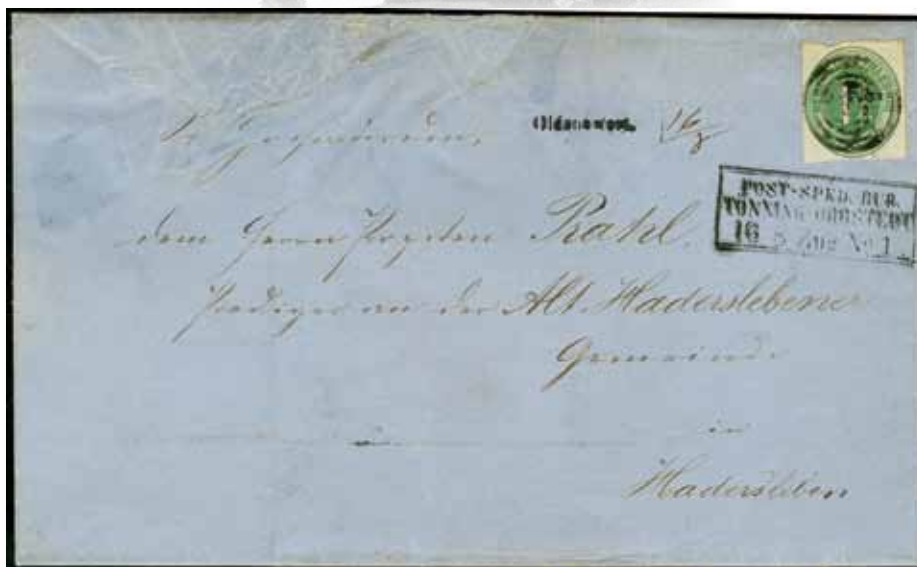 Oldenswort. 16/3
POST-SPED. BUR.
TÖNNING-OHRSTEDT
16 3 Zug No 1
dem Herrn Propsten Rahl,
Prediger an der Alt Haderslebener
Gemeinde
in
Hadersleben